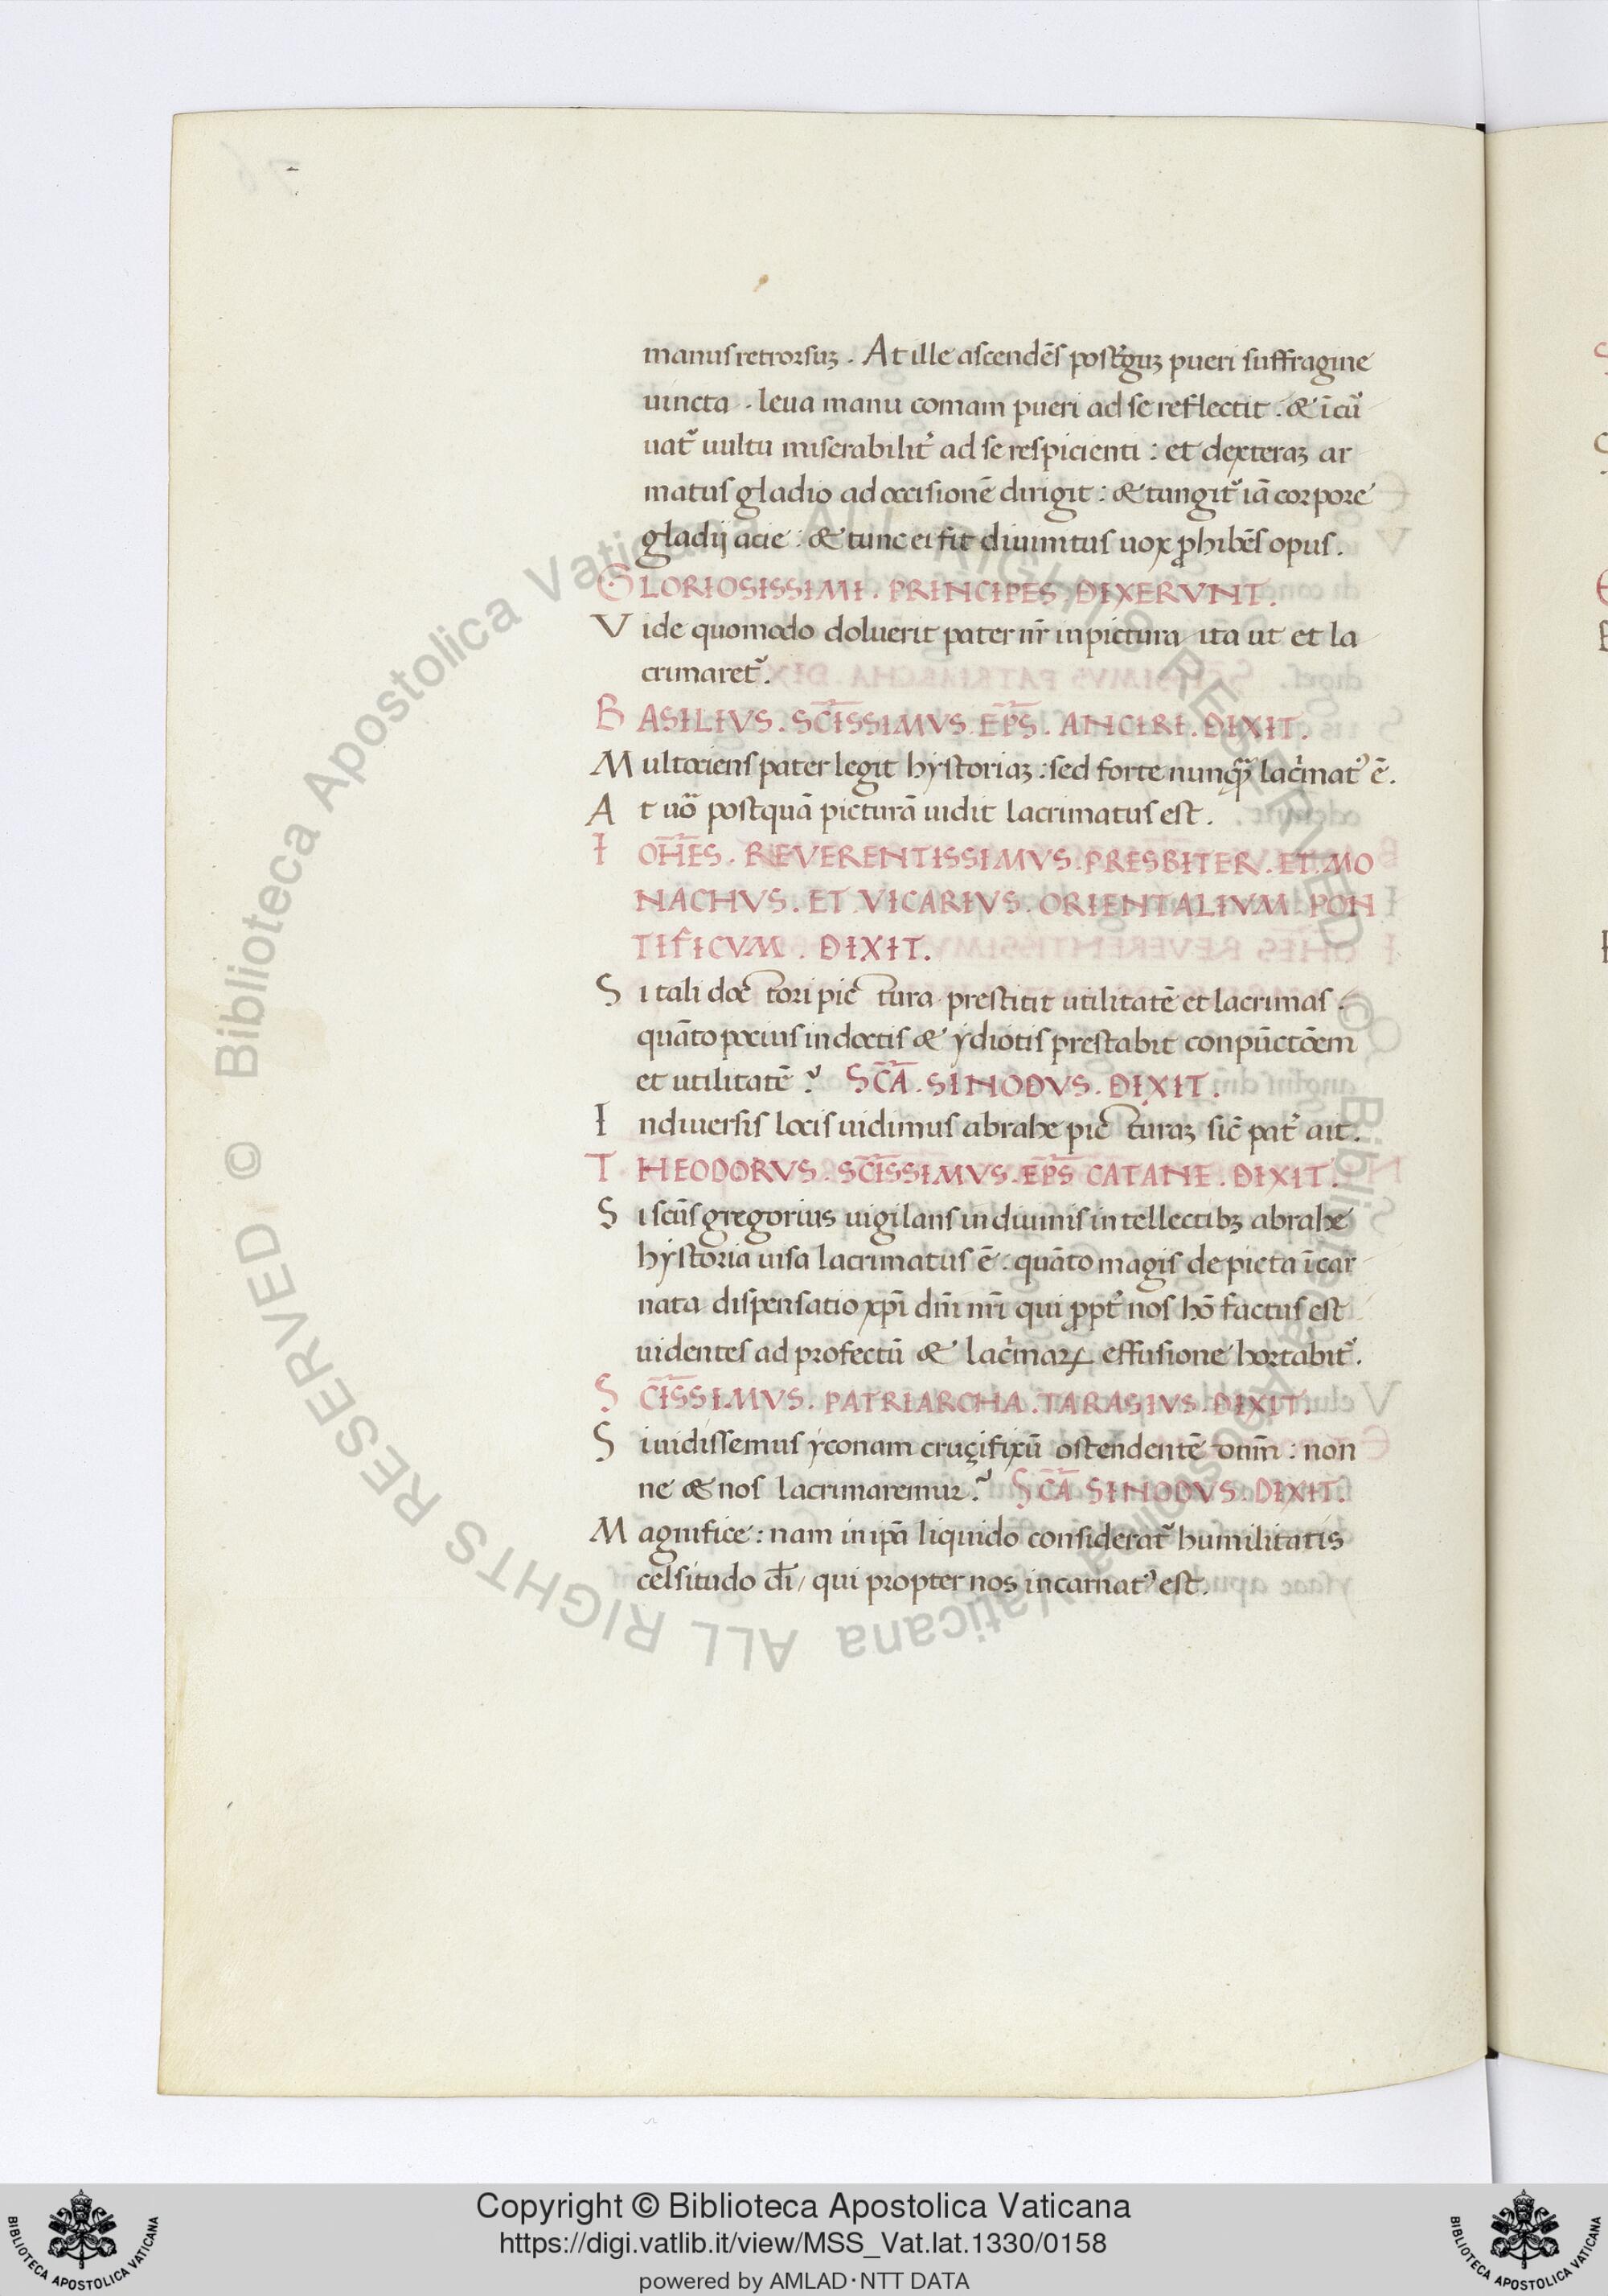 manus retrorsuꝫ. At ille ascendēs post̕guꝫ pueri suffragine
uincta. leua manu comam pueri ad se reflectit. & īcu᷑
uat᷑ uultu miserabilit̕ ad se respicienti: et dexteraꝫ ar
matus gladio ad occisionē dirigit: & tangit᷑ iā corpore
gladij acie: & tunc ei fit diuinitus uox ꝓhibēs opus.
GLORIOSISSIMI. PRINCIPES. DIXERVNT.
Vide quomodo doluerit pater nr̄ in pictura ita ut et la
crimaret᷑.
BASILIVS. SC̄ISSIMVS. EP̄S. ANCIRI. DIXIT.
Multociens pater legit hystoriaꝫ: sed forte nunqᷓ lac̕mat᷒ ē.
At uō postquā picturā uidit lacrimatus est.
IOH̄ES. REVERENTISSIMVS. PRESBITER. ET. MO
NACHVS. ET VICARIVS. ORIENTALIVM. PON
TIFICVM. DIXIT.
Si tali doctori pictura prestitit utilitatē et lacrimas.
quāto pocius indoctis & ydiotis prestabit conpūctōem
et utilitatē? SC̄A. SINODVS. DIXIT.
In diuersis locis uidimus abrahe picturaꝫ sic̄ pat̕ ait.
THEODORVS. SC̄ISSIMVS. EP̄S CATANE. DIXIT.
Si scūs gregorius uigilans in diuinis intellectibꝫ abrahe
hystoria uisa lacrimatus ē. quāto magis depicta īcar
nata dispensatio xp̄i dn̄i nr̄i qui ꝓpt̕ nos hō factus est
uidentes ad profectū & lac̕maꝝ effusione hortabit᷑.
SC̄ISSIMVS. PATRIARCHA. TARASIVS. DIXIT.
Si uidissemus yconam crucifixū ostendentē dn̄m: non
ne & nos lacrimaremur? SC̄A SINODVS. DIXIT.
Magnifice: nam in ip̄a liquido considerat᷑ humilitatis
celsitudo dī/ qui propter nos incarnat᷒ est.
© Biblioteca Apostolica Vaticana ALL RIGHTS RESERVED © Biblioteca Apostolica Vaticana ALL RIGHTS RESERVED
Copyright © Biblioteca Apostolica Vaticana
https://digi.vatlib.it/view/MSS_Vat.lat.1330/0158
powered by AMLAD·NTT DATA
BIBLIOTECA APOSTOLICA VATICANA
BIBLIOTECA APOSTOLICA VATICANA